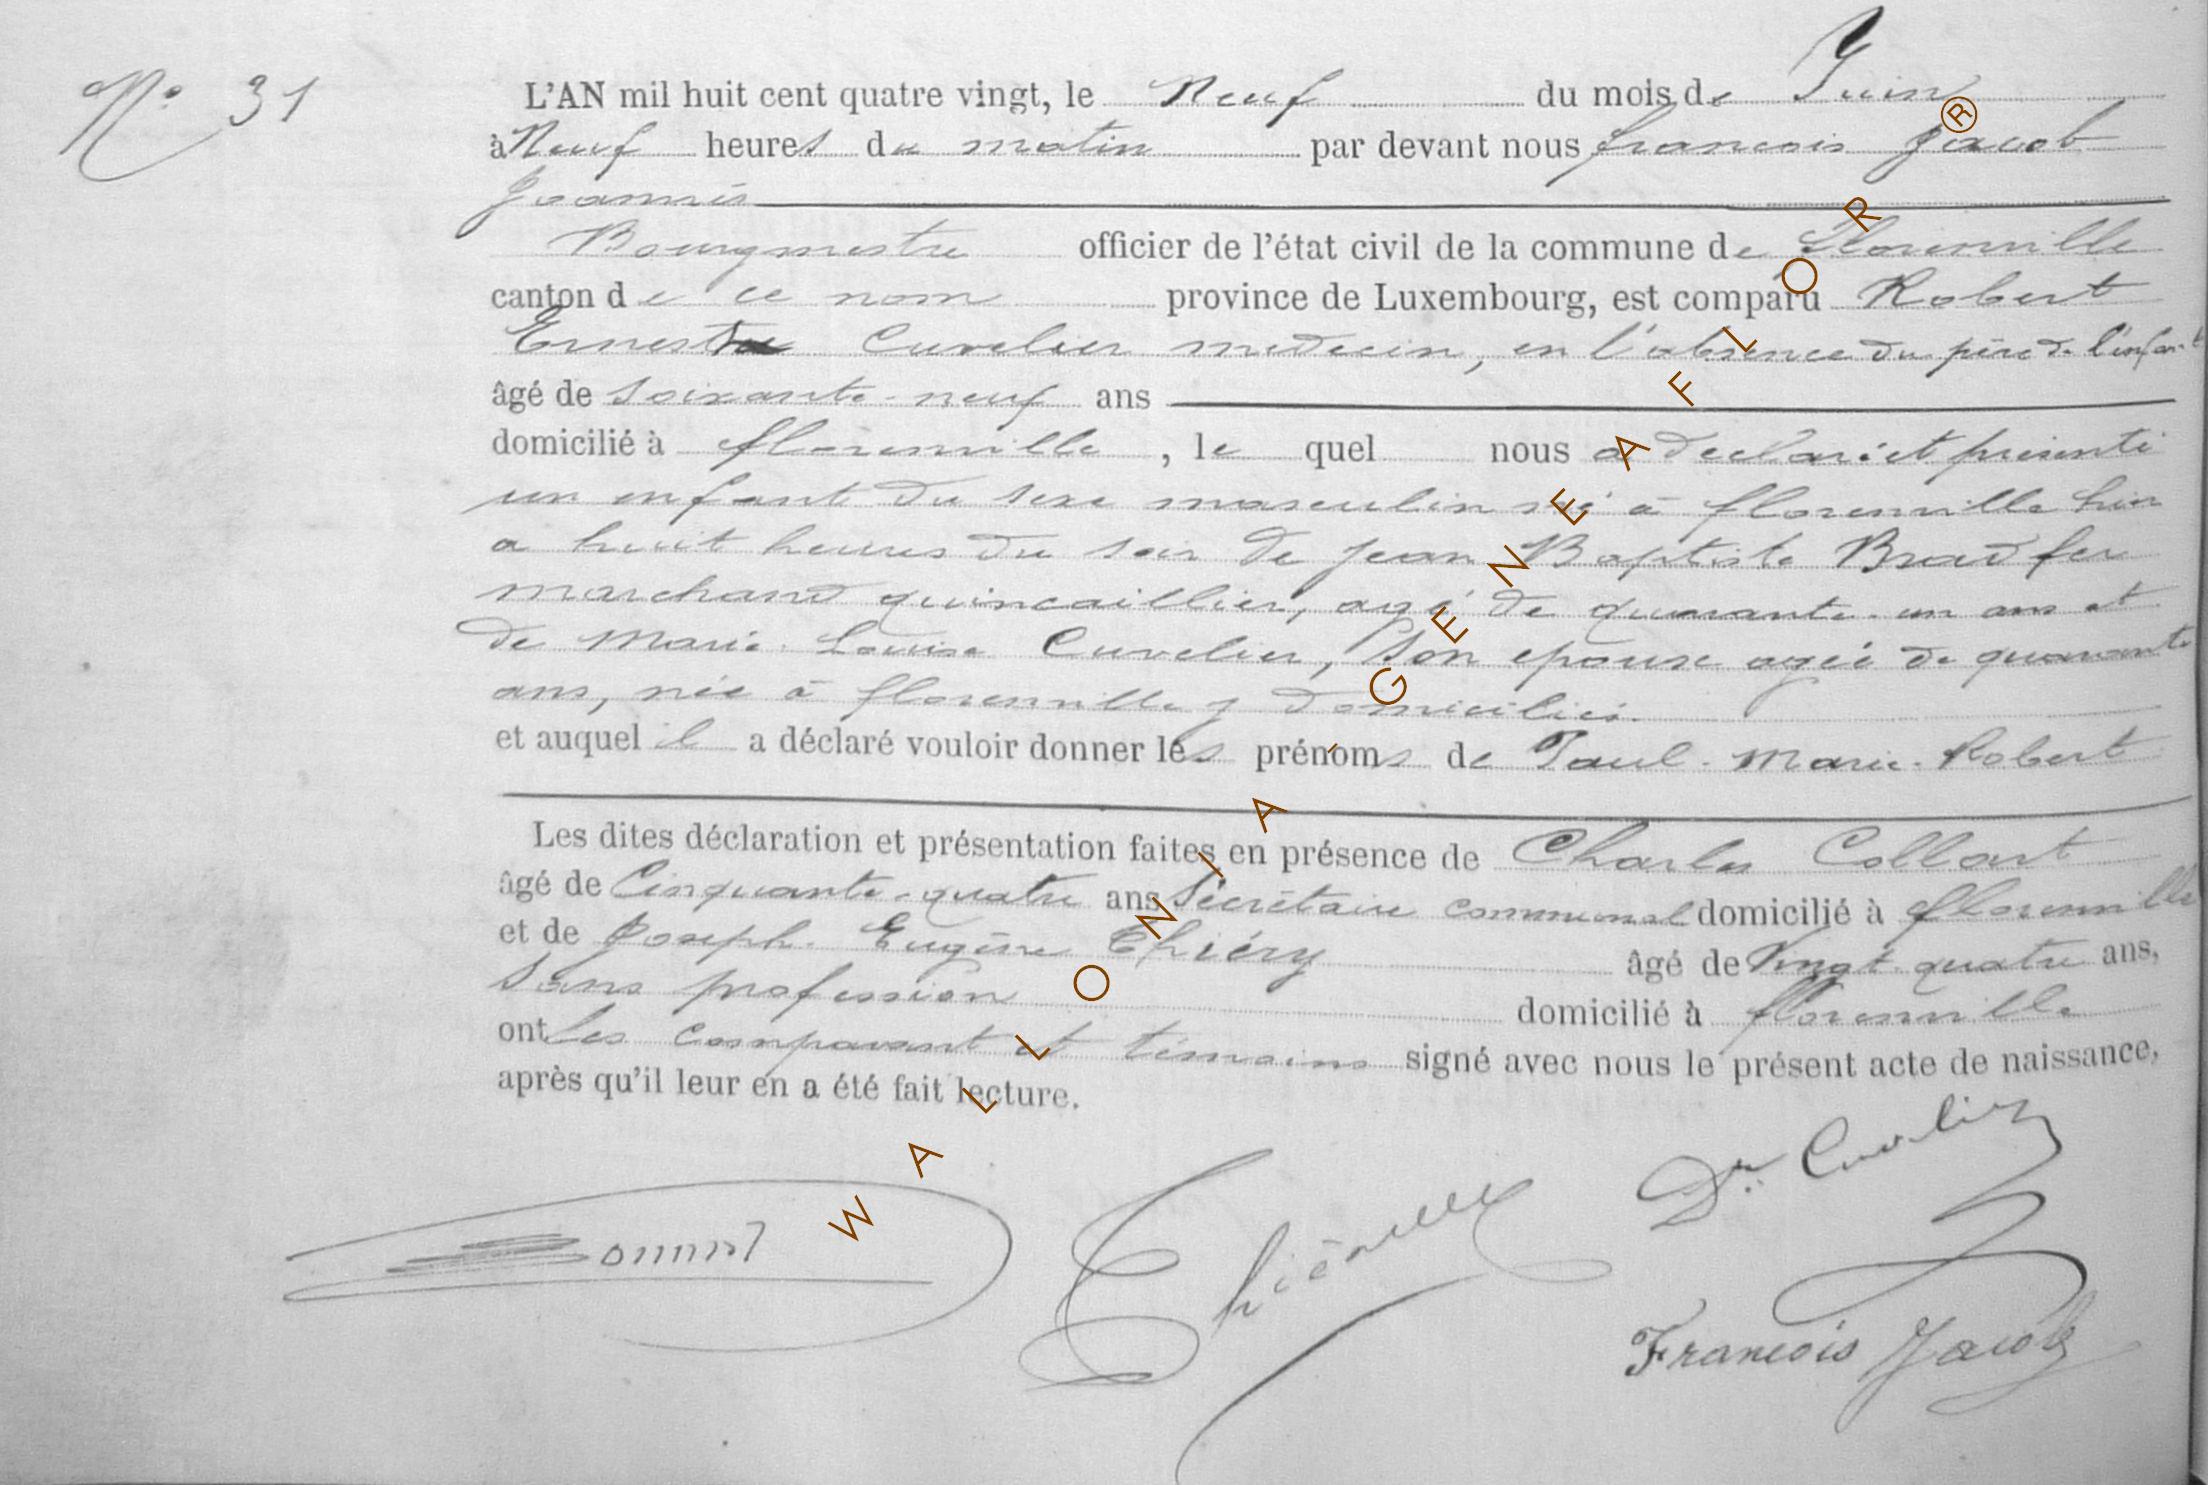 N° 31
L'AN mil huit cent quatre vingt, le Neuf du mois de Juin
à Neuf heures du matin par devant nous francois Jacob
Joannis
Bourgmestre officier de l'état civil de la commune de Florenville
canton de ce nom province de Luxembourg, est comparu Robert
Ernest Cuvelier medecin, en l'absence du père de l'enfant
âgé de soixante-neuf ans
domicilié à florenville, le quel nous a declaré et présenté
un enfant du sexe masculin né à florenville hier
a huit heures du soir de jean Baptiste Bradfer
marchand quincaillier, agé de quarante-un ans et
de Marie Louise Cuvelier, son epouse agée de quarante
ans, née à florenville y domiciliés.
et auquel il a déclaré vouloir donner les prénoms de Paul-Marie-Robert
Les dites déclaration et présentation faites en présence de Charles Collart
âgé de Cinquante-quatre ans Sécrétaire communal domicilié à florenville
et de Joseph Eugène Thiéry âgé de Vingt-quatre ans,
Sans profession domicilié à florenville
ont les comparant et témoins signé avec nous le présent acte de naissance,
après qu'il leur en a été fait lecture.
Dr Cuvelier
François Jacob
WALLONIA GENEAFLOR ®